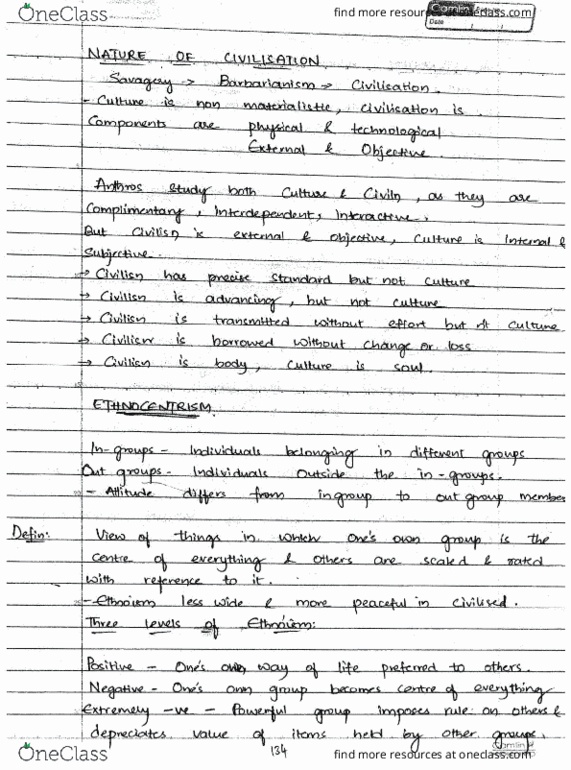 OneClass
find more resources at oneclass.com
Camlin
Date
NATURE OF CIVILISATION
Savagery -> Barbarianism -> Civilisation.
- Culture is non materialistic, Civilisation is.
Components are physical & technological
External & Objective.
Anthros study both Culture & Civiln, as they are
Complimentary, Interdependent, Interactive.
But Civilisn is external & objective, Culture is Internal &
Subjective.
→ Civilisn has precise standard but not culture
→ Civilisn is advancing, but not culture
→ Civilisn is transmitted without effort but culture
→ Civilisn is borrowed without change or loss
→ Civilisn is body, culture is soul.
ETHNOCENTRISM.
In-groups - Individuals belonging in different groups
Out groups - Individuals outside the in-groups.
- Attitude differs from ingroup to out group member
Defin: View of things in which one's own group is the
centre of everything & others are scaled & rated
with reference to it.
- Ethnoism less wide & more peaceful in civilised.
Three levels of Ethnoism:
Positive - One's own way of life preferred to others.
Negative - One's own group becomes centre of everything
Extremely -ve - Powerful group imposes rule on others &
depreciates value of items held by other groups.
134
Camlin
OneClass
find more resources at oneclass.com